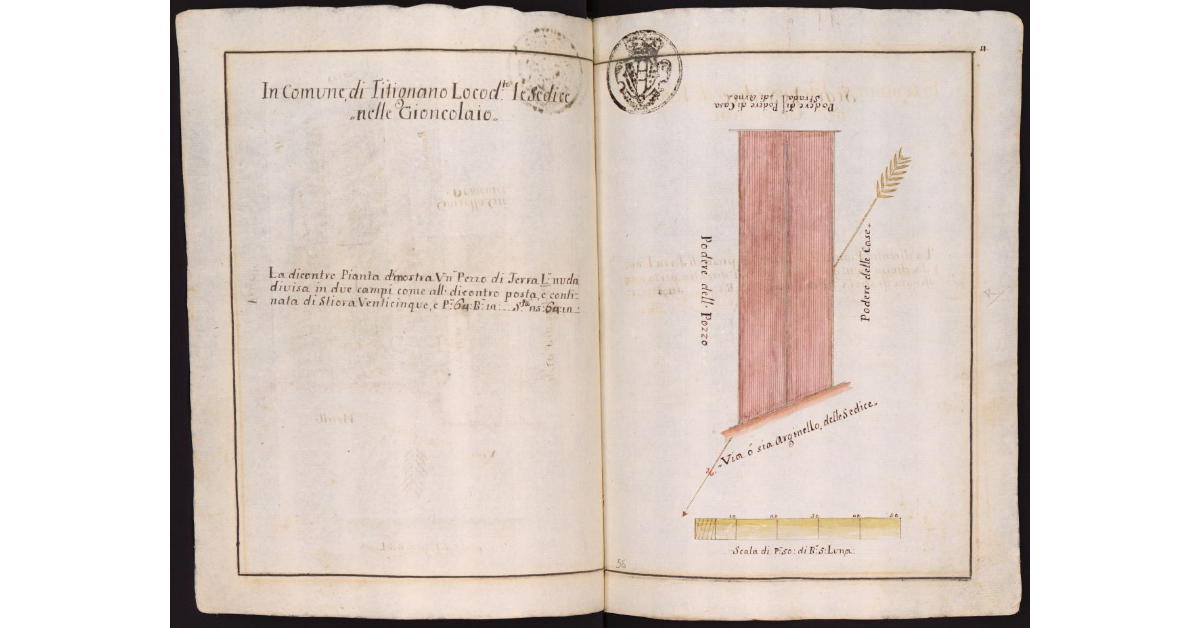 In Comune, di Titignano Loco d.ᵗᵒ le Sedice
„nelle Gioncolaio„
La dicontro Pianta dimostra Vn Pezzo di Terra L: nuda
divisa in due campi come all: dicontro posta, e confi:
nata di Stiora Venticinque, e P: 64: B:
11
Podere di Podere di Casa
Podere dell: Pozzo
Podere delle Case„
„Via ó sia Arginello, delle Sedice„
10 20 30 40 50
Scala di P: 50: di B: 5: L'una
56